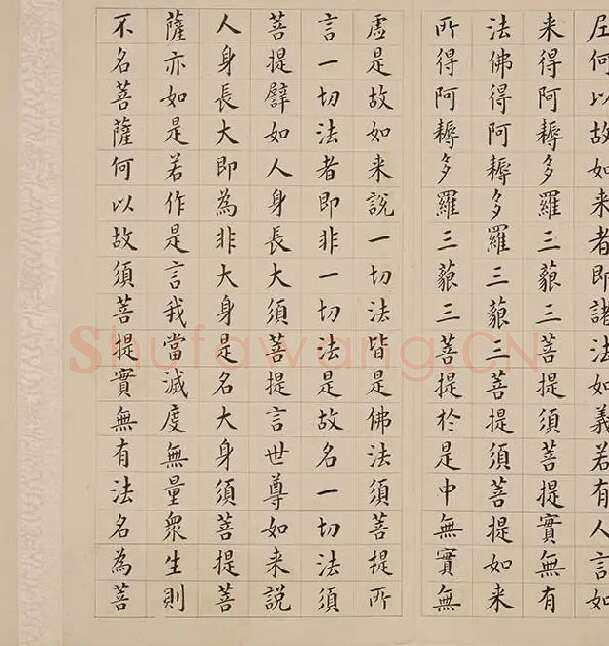 尼何以故如来者即諸法如義若有人言如
来得阿耨多羅三藐三菩提須菩提實無有
法佛得阿耨多羅三藐三菩提須菩提如来
所得阿耨多羅三藐三菩提於是中無實無
虛是故如来說一切法皆是佛法須菩提所
言一切法者即非一切法是故名一切法須
菩提譬如人身長大須菩提言世尊如来說
人身長大即為非大身是名大身須菩提菩
薩亦如是若作是言我當滅度無量眾生則
不名菩薩何以故須菩提實無有法名為菩
Shufawang.CN